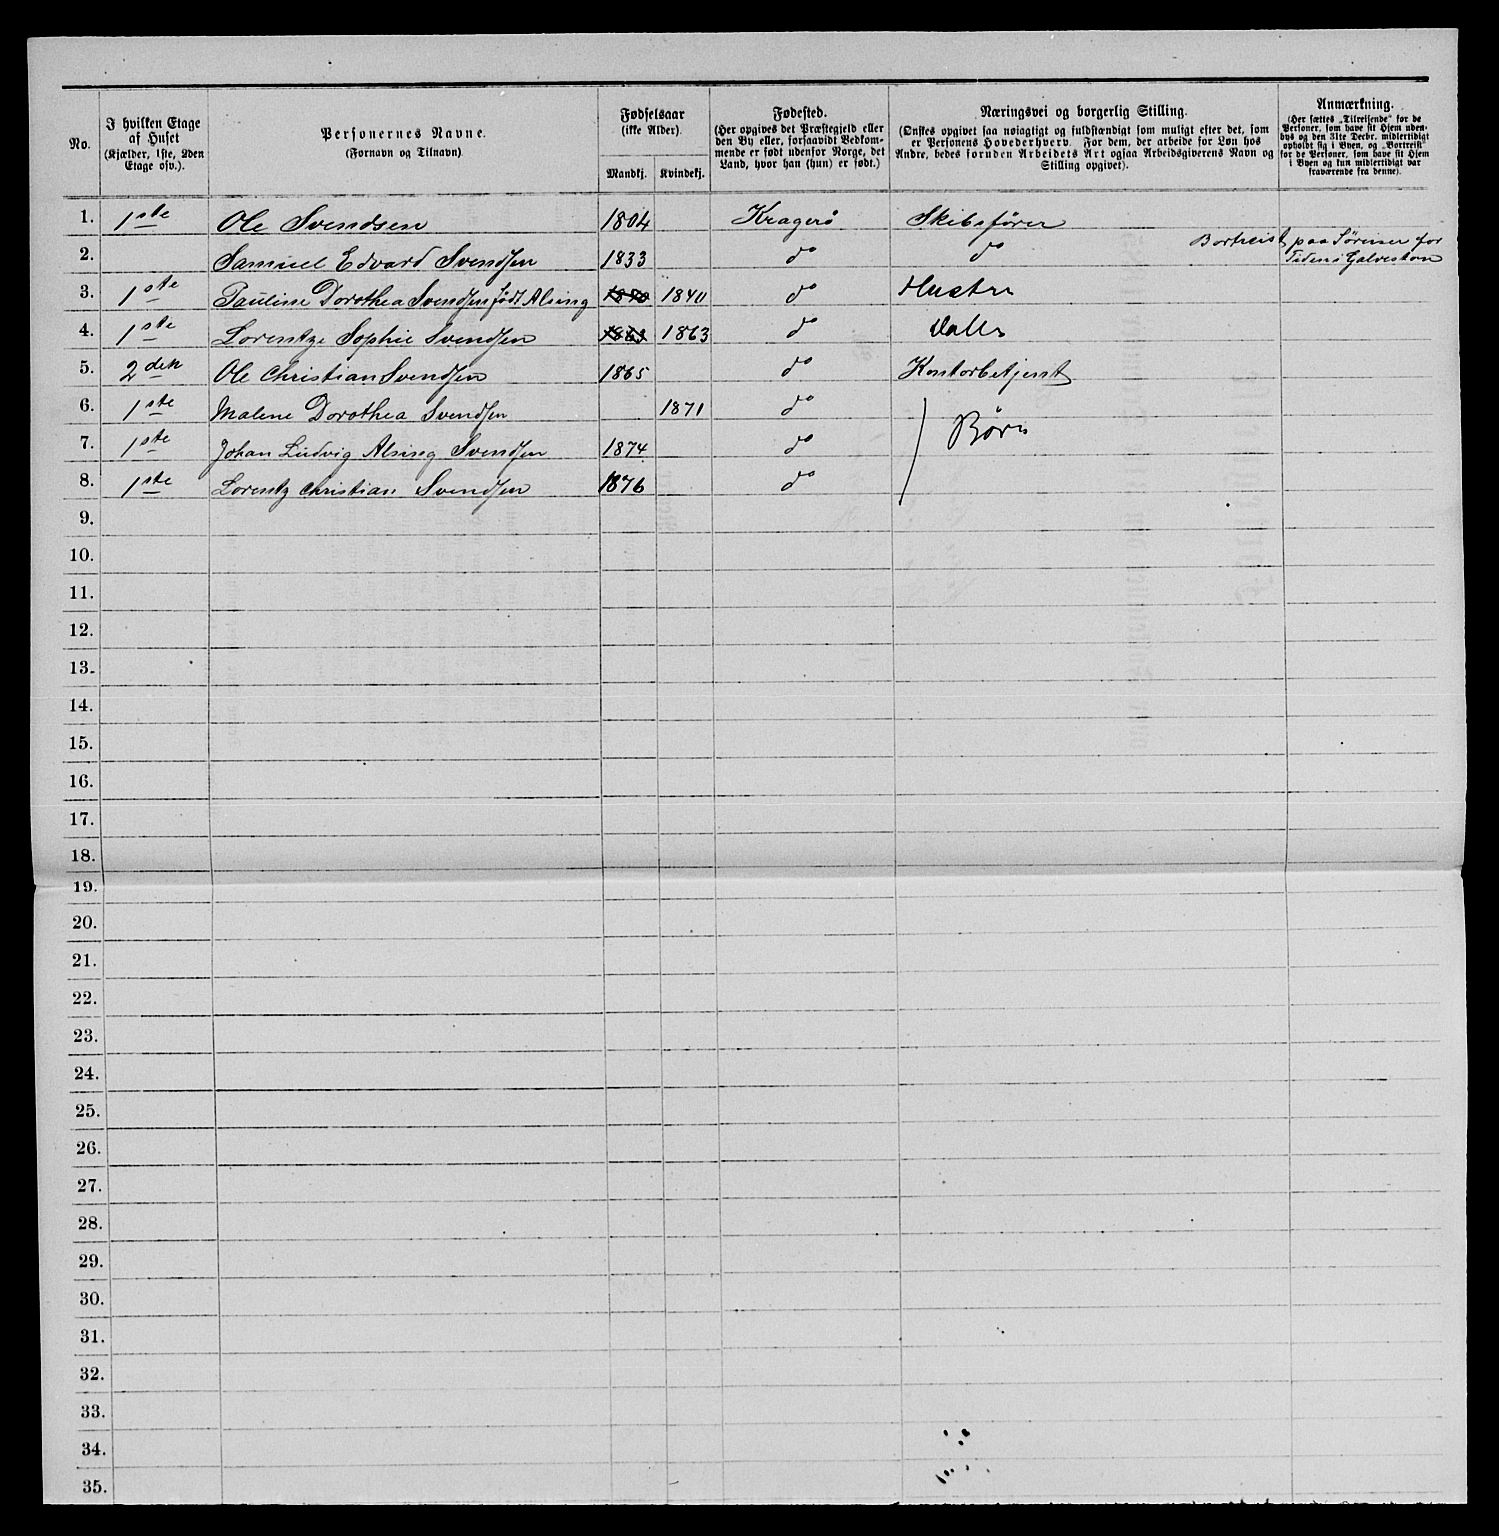 No.
I hvilken Etage
af Huset
(Kjælder, 1ste, 2den
Etage osv.).
Personernes Navne.
(Fornavn og Tilnavn)
Fødselsaar
(ikke Alder).
Mandkj. Kvindekj.
Fødested.
(Her opgives det Præstegjeld eller
den By eller, forsaavidt Vedkom-
mende er født udenfor Norge, det
Land, hvor han (hun) er født.)
Næringsvei og borgerlig Stilling.
(Ønskes opgivet saa nøiagtigt og fuldstændigt som muligt efter det, som
er Personens Hovederhverv. For dem, der arbeide for Løn hos
Andre, bedes foruden Arbeidets Art ogsaa Arbeidsgiverens Navn og
Stilling opgivet).
Anmærkning.
(Her sættes „Tilreisende“ for de
Personer, som have sit Hjem uden-
bys og den 31te Decbr. midlertidigt
opholdt sig i Byen, og „Bortreist“
for de Personer, som have sit Hjem
i Byen og kun midlertidigt var
fraværende fra denne).
1. 1ste Ole Svendsen 1804 Kragerø Skibsfører
2. Samuel Edvard Svendsen 1833 do do Bortreist paa Søreiser for
Tiden i Galveston
3. 1ste Pauline Dorothea Svendsen født Alsing 1840 1840 do Hustru
4. 1ste Lorentze Sophie Svendsen 1863 1863 do
5. 2den Ole Christian Svendsen 1865 do Kontorbetjent
6. 1ste Malene Dorothea Svendsen 1871 do
Børn
7. 1ste Johan Ludvig Alsing Svendsen 1874 do
8. 1ste Lorentz Christian Svendsen 1876 do
9.
10.
11.
12.
13.
14.
15.
16.
17.
18.
19.
20.
21.
22.
23.
24.
25.
26.
27.
28.
29.
30.
31.
32.
33.
34.
35.